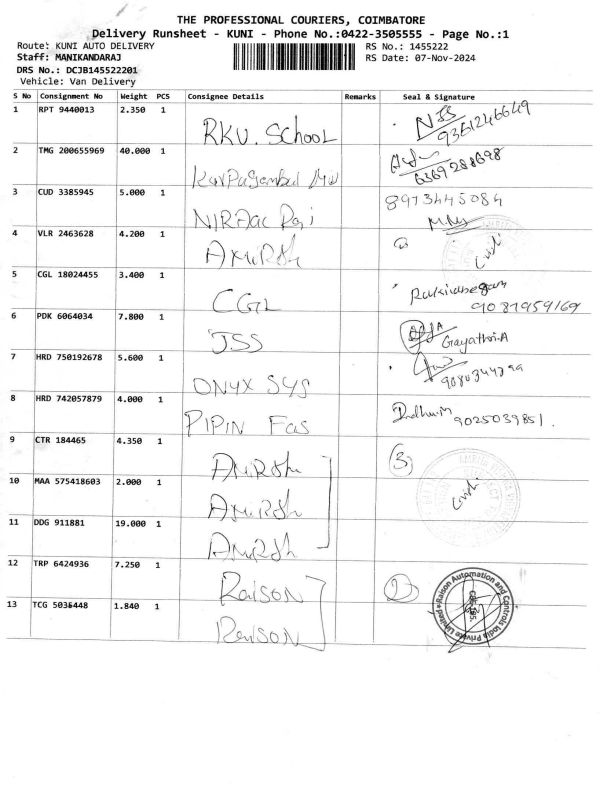 THE PROFESSIONAL COURIERS, COIMBATORE
Delivery Runsheet - KUNI - Phone No.:0422-3505555 - Page No.:1
Route: KUNI AUTO DELIVERY
RS No.: 1455222
Staff: MANIKANDARAJ
RS Date: 07-Nov-2024
DRS No.: DCJB145522201
Vehicle: Van Delivery
S No Consignment No Weight PCS Consignee Details Remarks Seal & Signature
1 RPT 9440013 2.350 1 RKV. School 9361246649
2 TMG 200655969 40.000 1 6369288698
3 CUD 3385945 5.000 1 8973445084
4 VLR 2463628 4.200 1 AMIRSh
5 CGL 18024455 3.400 1 CGL 9087959169
6 PDK 6064034 7.800 1 JSS Gayathri.A
7 HRD 750192678 5.600 1 ONYX SYS
8 HRD 742057879 4.000 1 PIPIN Fas 9025039851.
9 CTR 184465 4.350 1 AMIRSh 3
10 MAA 575418603 2.000 1 AMIRSh
11 DDG 911881 19.000 1 AMIRSh
12 TRP 6424936 7.250 1 Raison 2
Raison Automation and Controls India Private Limited
13 TCG 5035448 1.840 1 Raison